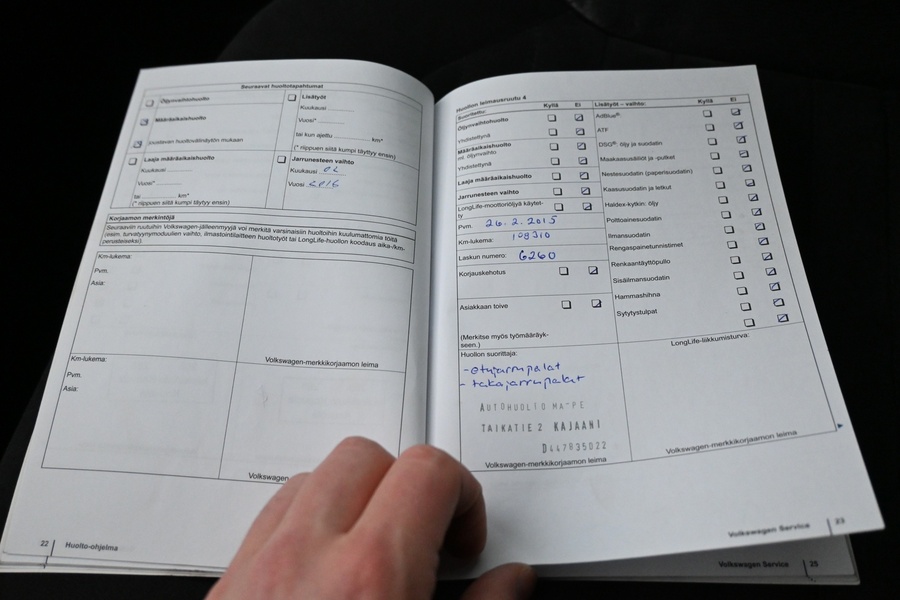 Seuraavat huoltotapahtumat
Öljynvaihtohuolto
Määräaikaishuolto
joustavan huoltovälinäytön mukaan
Laaja määräaikaishuolto
Kuukausi ............
Vuosi* ............
tai ............ km*
(* riippuen siitä kumpi täyttyy ensin)
Lisätyöt
Kuukausi ............
Vuosi* ............
tai kun ajettu ............ km*
(* riippuen siitä kumpi täyttyy ensin)
Jarrunesteen vaihto
Kuukausi 02
Vuosi 2016
Korjaamon merkintöjä
Seuraaviin ruutuihin Volkswagen-jälleenmyyjä voi merkitä varsinaisiin huoltoihin kuulumattomia töitä
(esim. turvatyynymoduulien vaihto, ilmastointilaitteen huoltotyöt tai LongLife-huollon koodaus aika-/km-
perusteiseksi).
Km-lukema:
Pvm.
Asia:
Volkswagen-merkkikorjaamon leima
Km-lukema:
Pvm.
Asia:
Volkswagen
22 Huolto-ohjelma
Huollon leimausruutu 4
Suoritettu: Kyllä Ei
Öljynvaihtohuolto
Yhdistettynä
Määräaikaishuolto
ml. öljynvaihto
Yhdistettynä
Laaja määräaikaishuolto
Jarrunesteen vaihto
LongLife-moottoriöljyä käytet-
ty
Pvm. 26.2.2015
Km-lukema: 108310
Laskun numero: 6260
Korjauskehotus
Asiakkaan toive
(Merkitse myös työmääräyk-
seen.)
Huollon suorittaja:
- etujarrupalat
- takajarrupalat
AUTOHUOLTO MA-PE
TAIKATIE 2 KAJAANI
D447835022
Volkswagen-merkkikorjaamon leima
Lisätyöt – vaihto: Kyllä Ei
AdBlue®:
ATF
DSG®: öljy ja suodatin
Maakaasusäiliöt ja -putket
Nestesuodatin (paperisuodatin)
Kaasusuodatin ja letkut
Haldex-kytkin: öljy
Polttoainesuodatin
Ilmansuodatin
Rengaspainetunnistimet
Renkaantäyttöpullo
Sisäilmansuodatin
Hammashihna
Sytytystulpat
LongLife-liikkumisturva:
Volkswagen-merkkikorjaamon leima
Volkswagen Service 23
Volkswagen Service 25